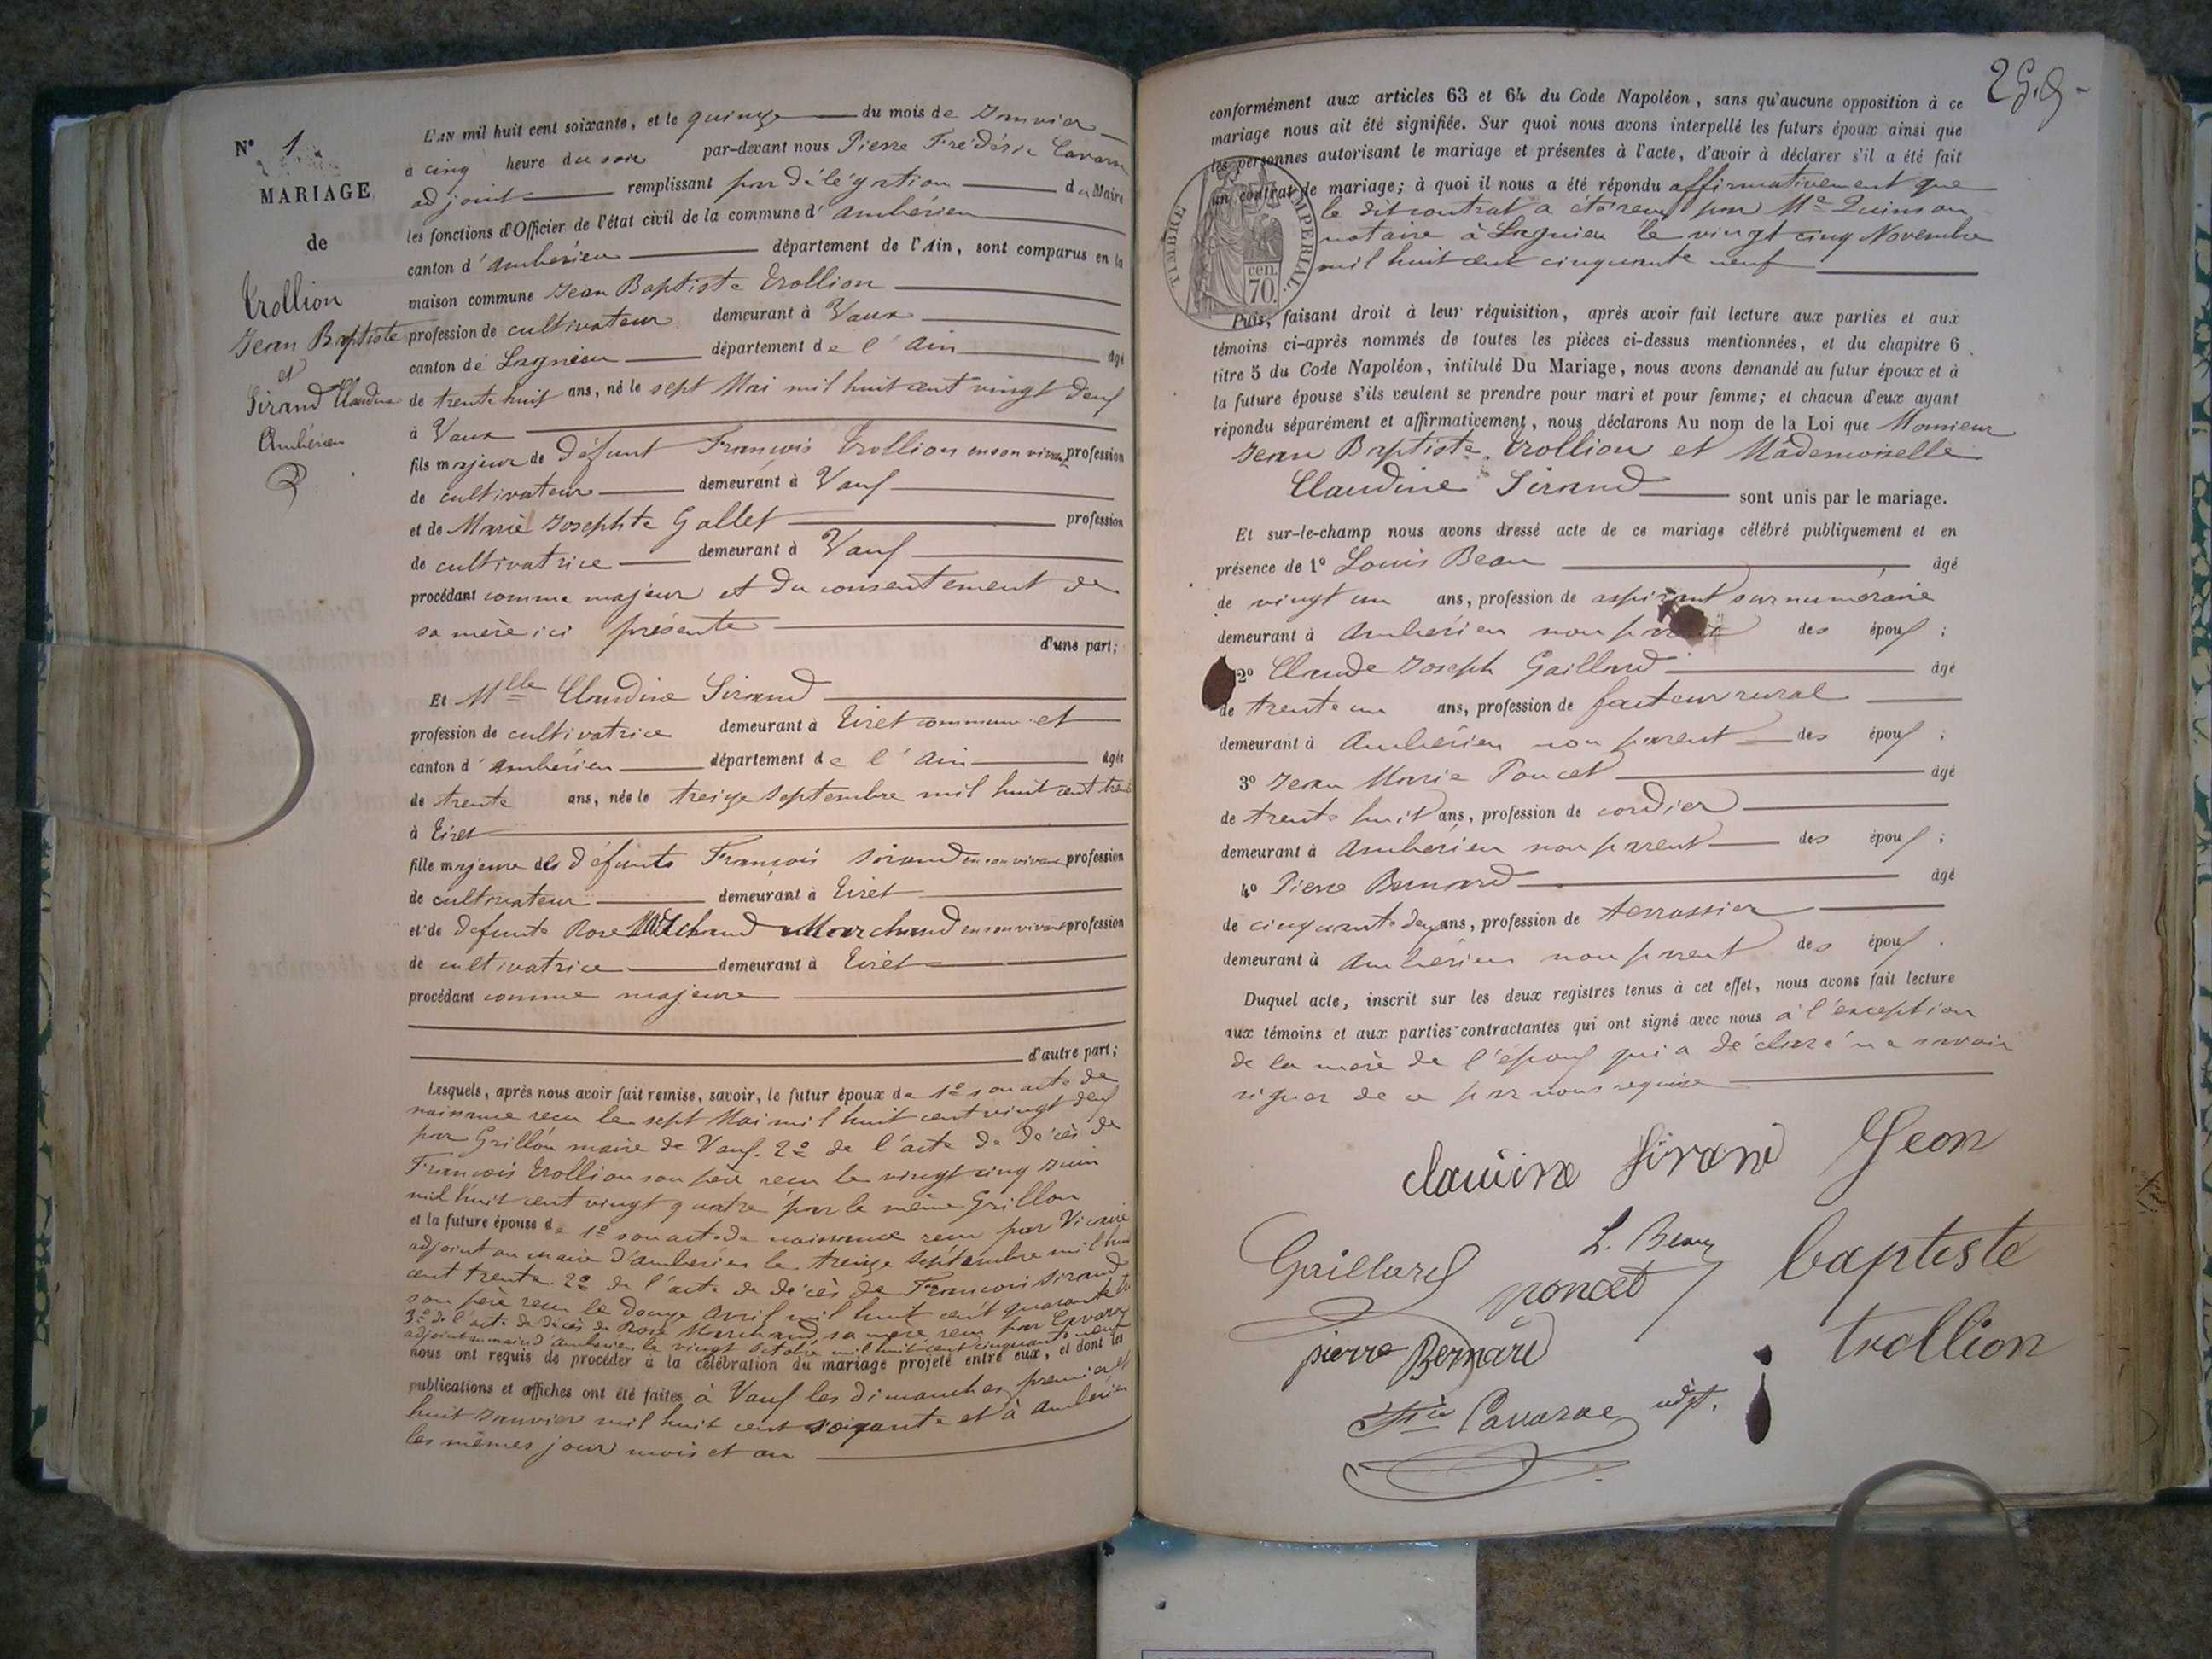 N° 1
MARIAGE
de
Trollion
Jean Baptiste
et
Sirand Claudine
Ambérieu
L'AN mil huit cent soixante, et le quinze du mois de Janvier
à cinq heure du soir par-devant nous Pierre Frédéric Cavaroc
adjoint remplissant par délégation du Maire
les fonctions d'Officier de l'état civil de la commune d'Ambérieu
canton d'Ambérieu département de l'Ain, sont comparus en la
maison commune Jean Baptiste Trollion
profession de cultivateur demeurant à Vaux
canton de Lagnieu département de l'Ain âgé
de trente huit ans, né le sept Mai mil huit cent vingt deux
à Vaux
fils majeur de défunt François Trollion en son vivant profession
de cultivateur demeurant à Vaux
et de Marie Josephte Gallet profession
de cultivatrice demeurant à Vaux
procédant comme majeur et du consentement de
sa mère ici présente
d'une part;
Et Mlle Claudine Sirand
profession de cultivatrice demeurant à Tiret commune et
canton d'Ambérieu département de l'Ain âgée
de trente ans, née le treize Septembre mil huit cent trente
à Tiret
fille majeure des défunts François Sirand en son vivant profession
de cultivateur demeurant à Tiret
et de défunte Rose Marchand en son vivant profession
de cultivatrice demeurant à Tiret
procédant comme majeure
d'autre part;
Lesquels, après nous avoir fait remise, savoir, le futur époux de 1° son acte de
naissance reçu le sept Mai mil huit cent vingt deux
par Grillon maire de Vaux. 2° de l'acte de décès de
François Trollion son père reçu le vingt cinq Juin
mil huit cent vingt quatre par le même Grillon
et la future épouse de 1° son acte de naissance reçu par Vicaire
adjoint au maire d'Ambérieu le treize Septembre mil huit
cent trente. 2° de l'acte de décès de François Sirand
son père reçu le douze Avril mil huit cent quarante
3° de l'acte de décès de Rose Marchand sa mère reçu par Cavaroc
adjoint au maire d'Ambérieu le vingt Octobre mil huit cent cinquante neuf
nous ont requis de procéder à la célébration du mariage projeté entre eux, et dont les
publications et affiches ont été faites à Vaux les dimanches premier et
huit Janvier mil huit cent soixante et à Ambérieu
les mêmes jour mois et an
conformément aux articles 63 et 64 du Code Napoléon, sans qu'aucune opposition à ce
mariage nous ait été signifiée. Sur quoi nous avons interpellé les futurs époux ainsi que
les personnes autorisant le mariage et présentes à l'acte, d'avoir à déclarer s'il a été fait
un contrat de mariage; à quoi il nous a été répondu affirmativement que
le dit contrat a été reçu par Me Quinson
notaire à Lagnieu le vingt cinq Novembre
mil huit cent cinquante neuf
TIMBRE IMPERIAL.
cen.
70.
Puis, faisant droit à leur réquisition, après avoir fait lecture aux parties et aux
témoins ci-après nommés de toutes les pièces ci-dessus mentionnées, et du chapitre 6
titre 5 du Code Napoléon, intitulé Du Mariage, nous avons demandé au futur époux et à
la future épouse s'ils veulent se prendre pour mari et pour femme; et chacun d'eux ayant
répondu séparément et affirmativement, nous déclarons Au nom de la Loi que Monsieur
Jean Baptiste Trollion et Mademoiselle
Claudine Sirand sont unis par le mariage.
Et sur-le-champ nous avons dressé acte de ce mariage célébré publiquement et en
présence de 1° Louis Beau âgé
de vingt un ans, profession de aspirant surnuméraire
demeurant à Ambérieu non parent des époux;
2° Claude Joseph Gaillard âgé
de trente un ans, profession de facteur rural
demeurant à Ambérieu non parent des époux;
3° Jean Marie Poncet âgé
de trente huit ans, profession de cordier
demeurant à Ambérieu non parent des époux;
4° Pierre Bernard âgé
de cinquante deux ans, profession de terrassier
demeurant à Ambérieu non parent des époux.
Duquel acte, inscrit sur les deux registres tenus à cet effet, nous avons fait lecture
aux témoins et aux parties contractantes qui ont signé avec nous à l'exception
de la mère de l'époux qui a déclaré ne savoir
signer de ce par nous requise
claudine sirand Jeon
Gaillard L. Beau baptiste
poncet
pierre Bernard trollion
Cavaroc adjt.